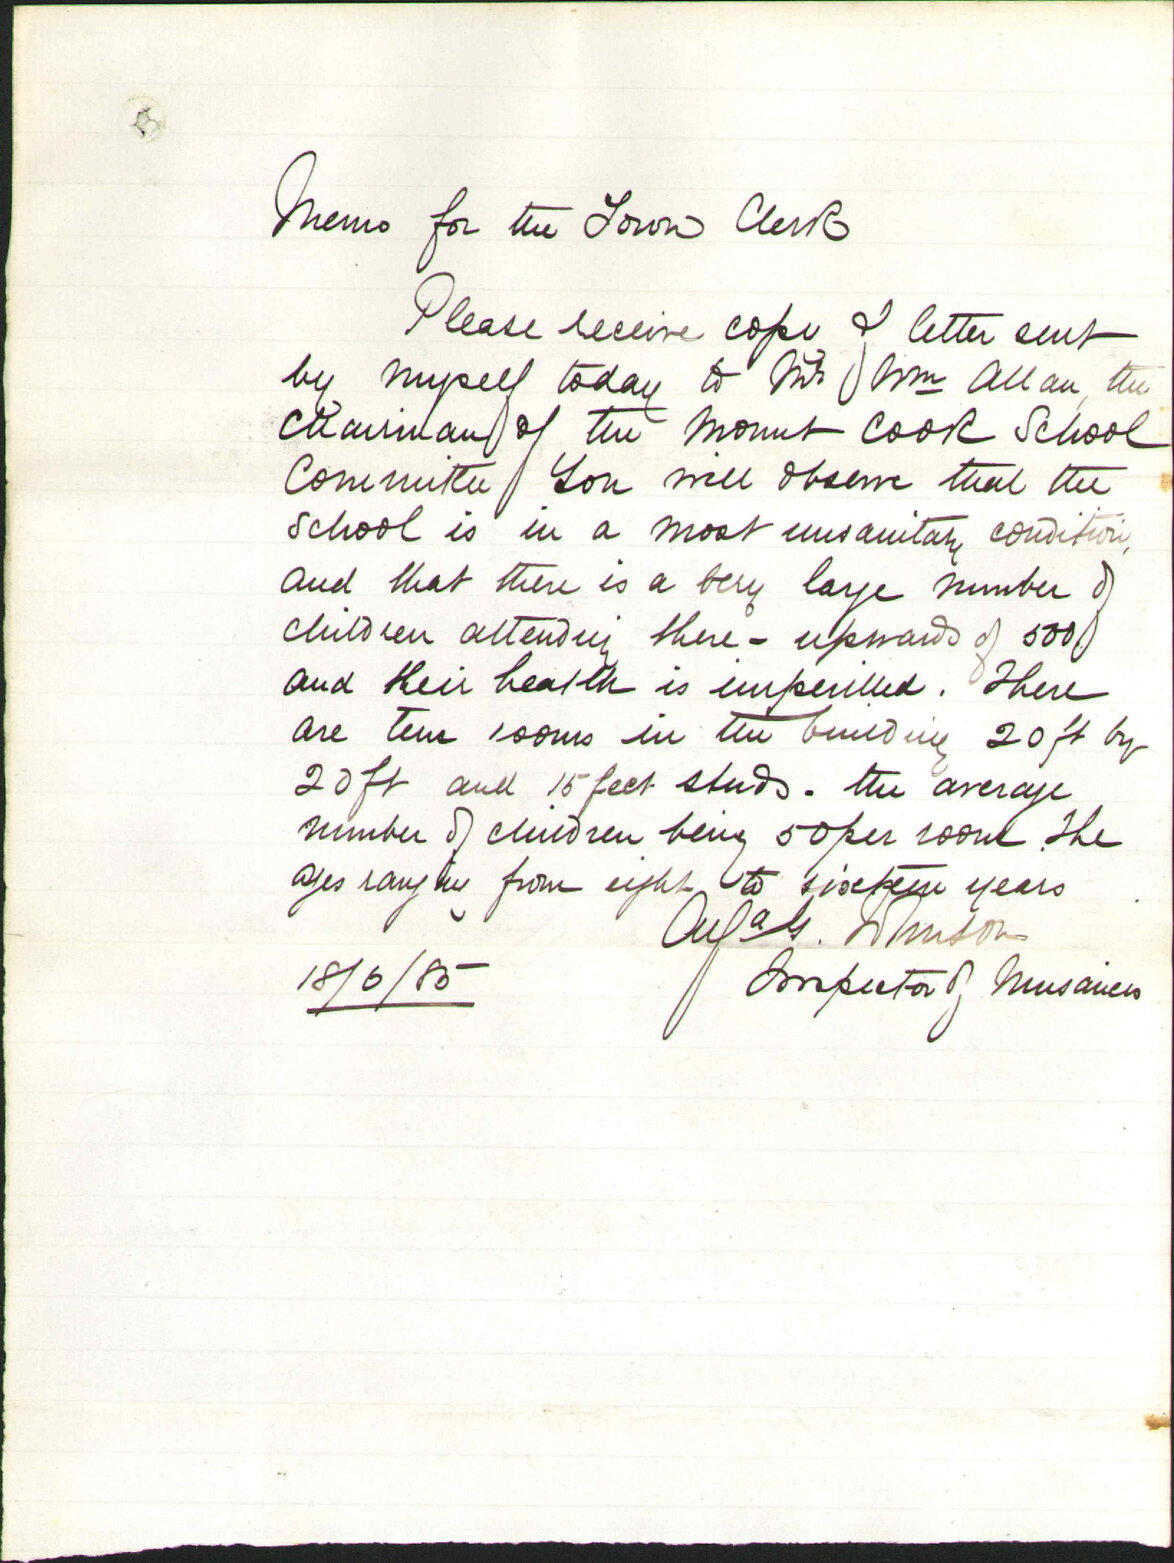 Memo for the Town Clerk
Please receive copy of letter sent
by myself today to Mr Wm Allan, the
Chairman of the Mount Cook School
Committee You will observe that the
School is in a most unsanitary condition,
and that there is a very large number of
children attending there - upwards of 500
and their health is imperilled. There
are ten rooms in the building 20 ft by
20 ft and 15 feet studs. the average
number of children being 50 per room. The
ages ranging from eight to sixteen years
Johnson
18/6/85
Inspector of Nuisances